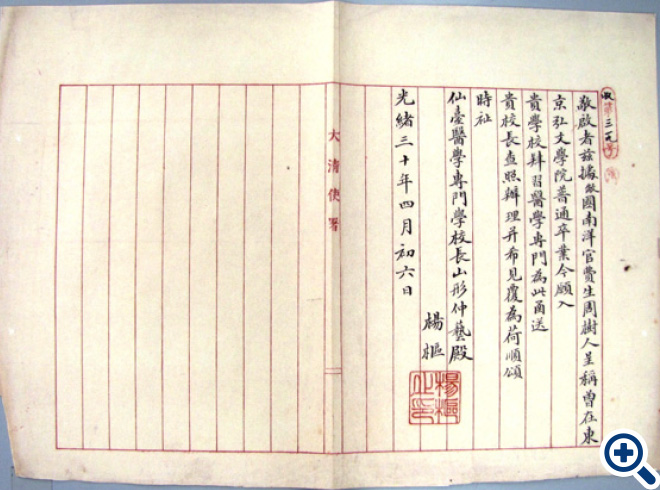 收第三一号
敬啟者茲據敝國南洋官費生周樹人呈稱曾在東
京弘文學院普通卒業今願入
貴學校肄習醫學專門為此函送
貴校長查照辦理并希見覆為荷順頌
時祉
仙臺醫學專門學校長山形仲藝殿
楊樞
楊樞之印
光緒三十年四月初六日
大清使署